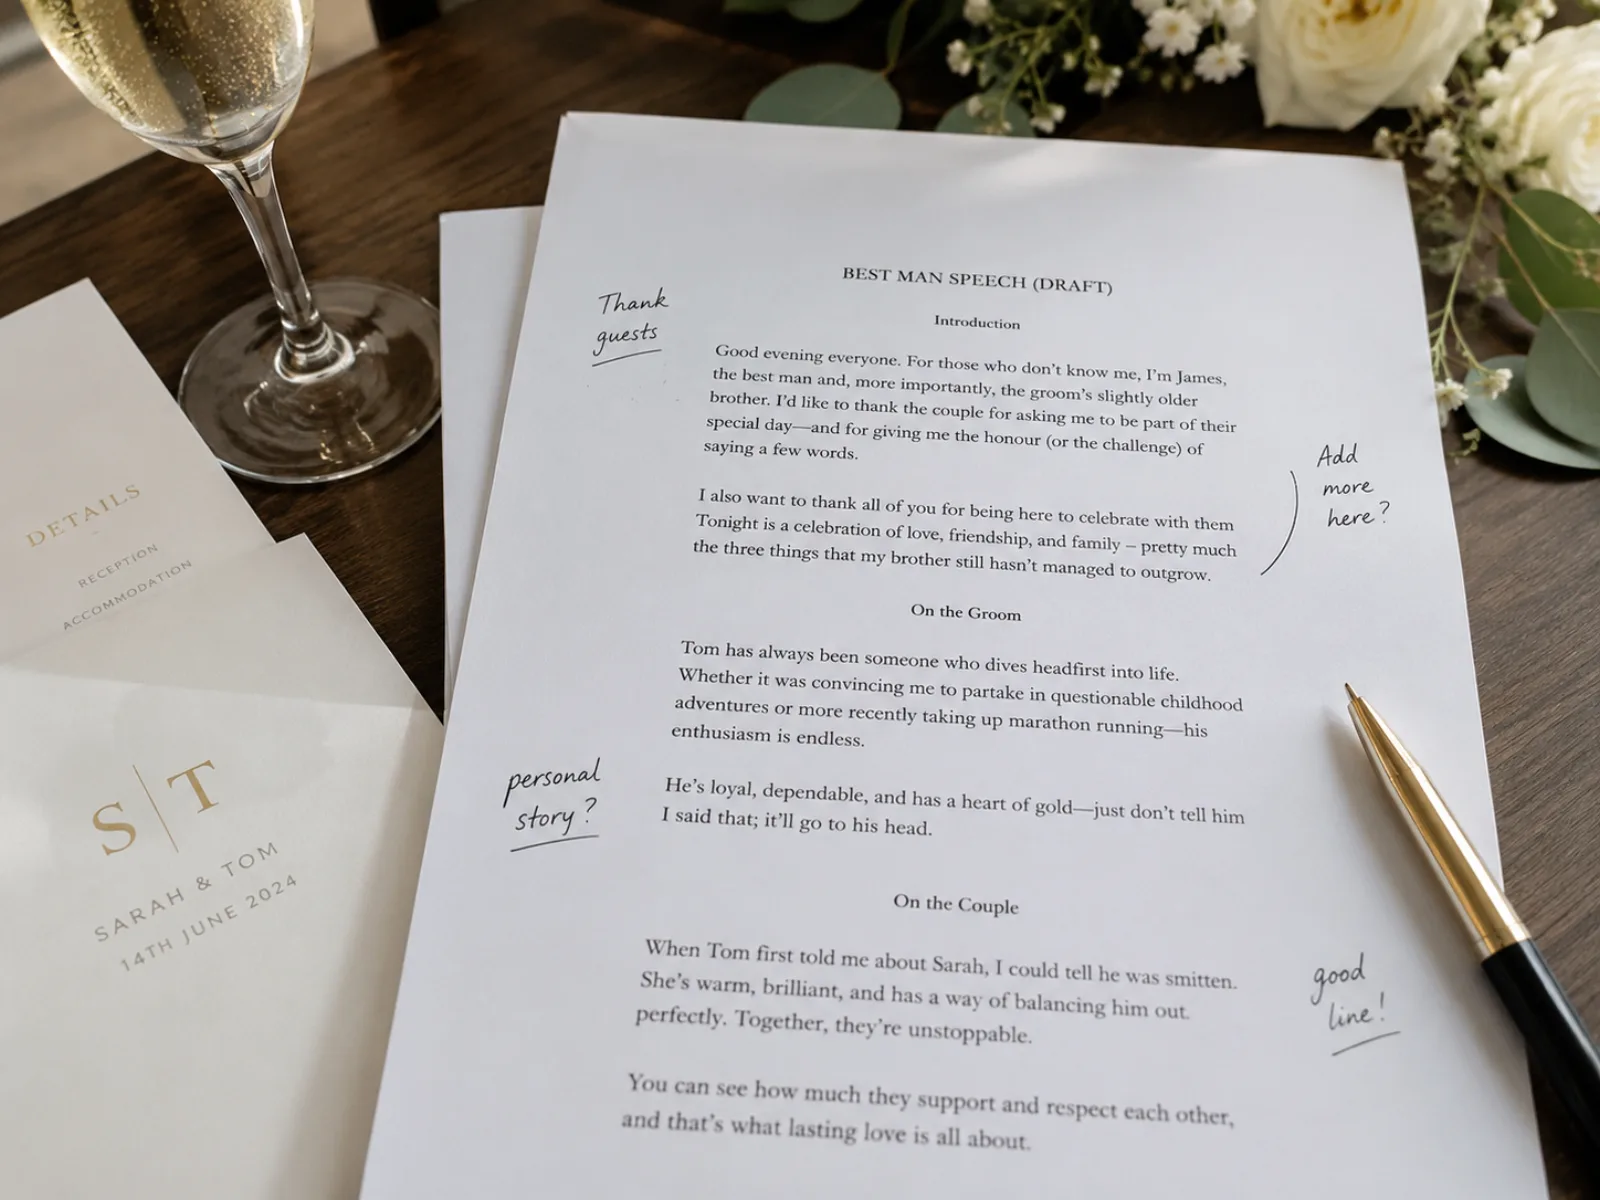 BEST MAN SPEECH (DRAFT)
Introduction
Thank
guests
Good evening everyone. For those who don’t know me, I’m James,
the best man and, more importantly, the groom’s slightly older
brother. I’d like to thank the couple for asking me to be part of their
special day—and for giving me the honour (or the challenge) of
saying a few words.
I also want to thank all of you for being here to celebrate with them
Tonight is a celebration of love, friendship, and family – pretty much
the three things that my brother still hasn’t managed to outgrow.
Add
more
here?
On the Groom
Tom has always been someone who dives headfirst into life.
Whether it was convincing me to partake in questionable childhood
adventures or more recently taking up marathon running—his
enthusiasm is endless.
personal
story?
He’s loyal, dependable, and has a heart of gold—just don’t tell him
I said that; it’ll go to his head.
On the Couple
When Tom first told me about Sarah, I could tell he was smitten.
She’s warm, brilliant, and has a way of balancing him out.
perfectly. Together, they’re unstoppable.
good
line!
You can see how much they support and respect each other,
and that’s what lasting love is all about.
DETAILS
RECEPTION
ACCOMMODATION
S | T
SARAH & TOM
14TH JUNE 2024